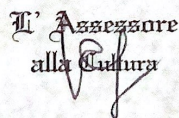 L' Assessore
alla Cultura